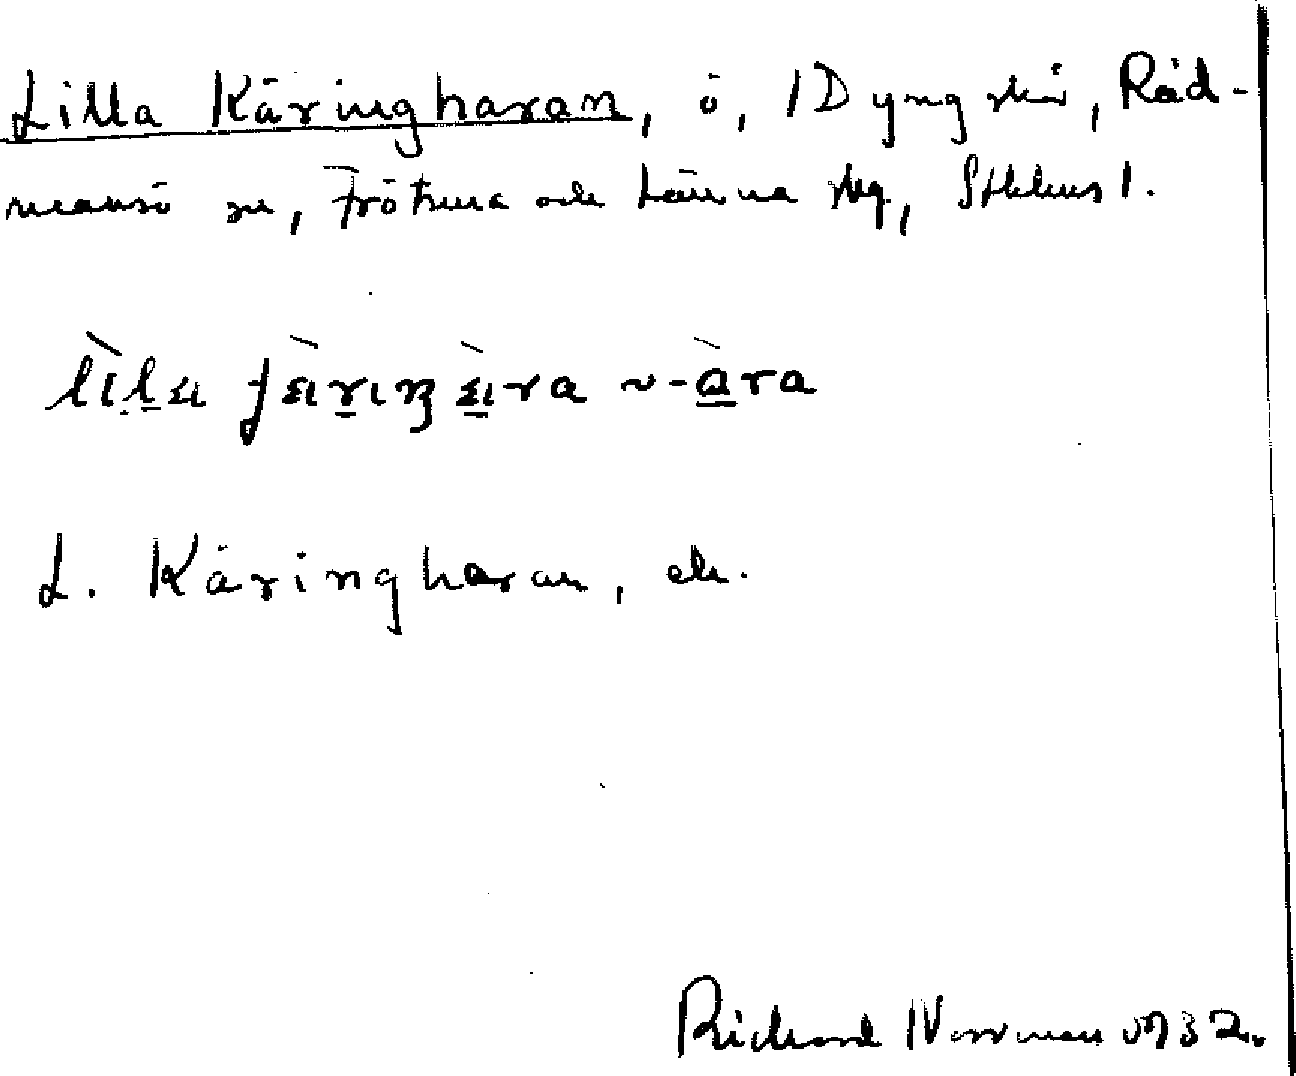 Lilla Käringharan, ö, 1D yngskär, Råd-
mansö sn, Frötuna och Länna skg, Sthlms l.
L. Käringharan, ek.
Richard Norrman 1932.